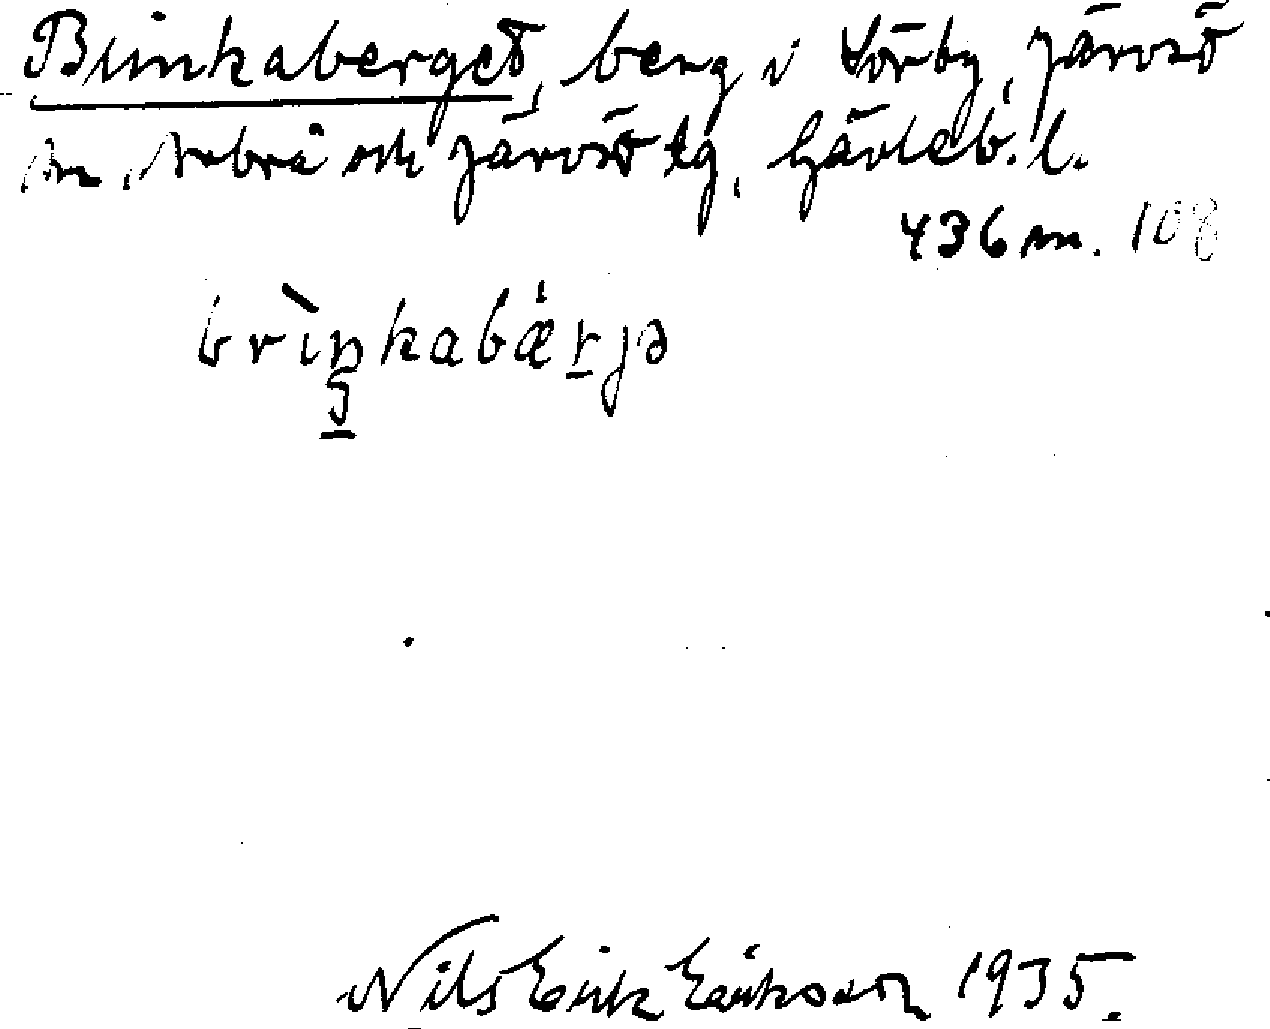 Brinkaberget, berg i Sörby, Järvsö
sn, Arbrå och Järvsö tg, Gävleb. l.
436 m. 108
brìŋkabæ̀rjə
Nils Erik Eriksson 1935.